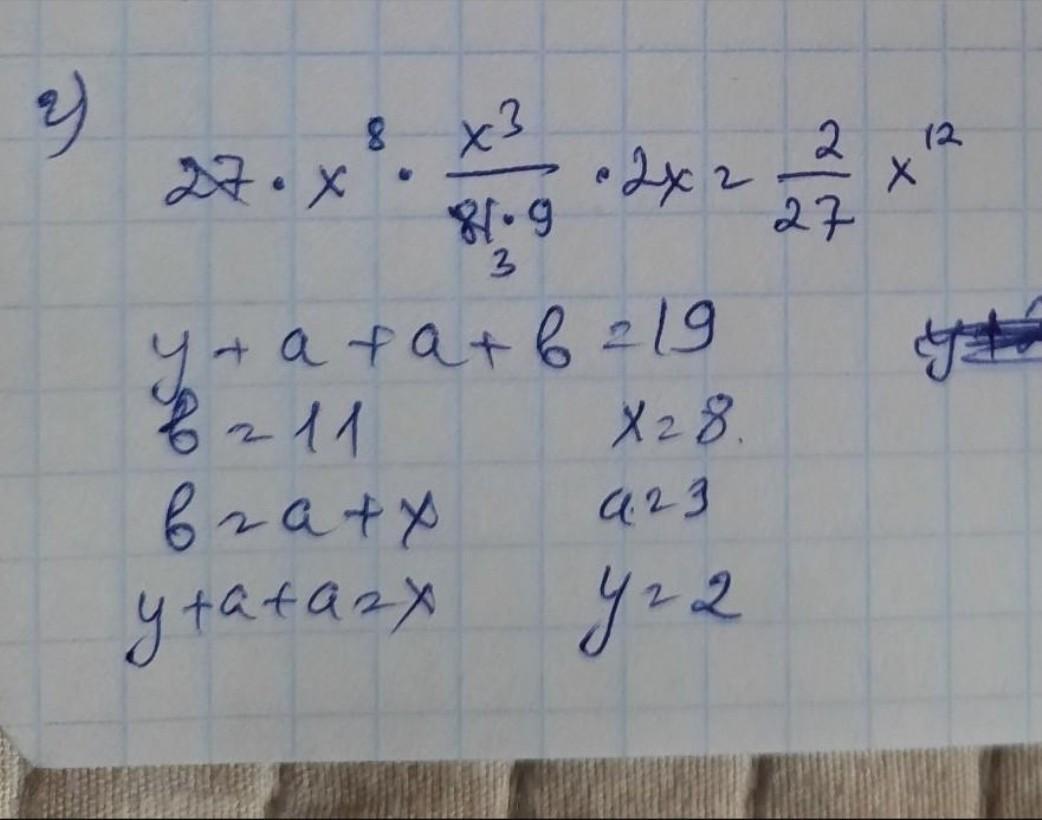 г)
27 · x⁸ · x³/(81·9) · 2x = 2/27 x¹²
3
y + a + a + b = 19
b = 11 x = 8.
b = a + x a = 3
y + a + a = x y = 2